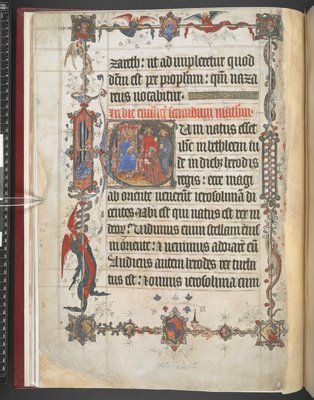 zareth: ut adimpleretur quod
dictum est per prophetam: quoniam naza
reus vocabitur.
In die evangelium secundum matheum
Cum natus esset
ihesus in bethleem iu
de in diebus herodis
regis: ecce magi
ab oriente venerunt ierosolima di
centes. Ubi est qui natus est rex iu
deorum? Vidimus enim stellam eius
in oriente: et venimus adorare eum
Audiens autem herodes rex turba
tus est: et omnis ierosolima cum